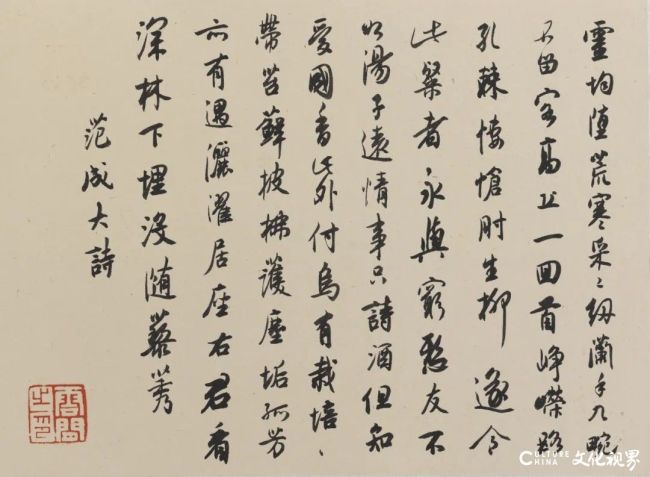 靈均墮荒寒采〻紉蘭手九畹
不留客高丘一回首崢嶸路
孔棘悽愴肘生柳遂令
此粲者永與窮愁友不
如湯子遠情事只詩酒但知
愛國香此外付烏有栽培
帶苔蘚披拂護塵垢孤芳
亦有遇灑濯居座右君看
深林下埋沒隨藜莠
范成大詩
之印
CULTURE CHINA 文化视界